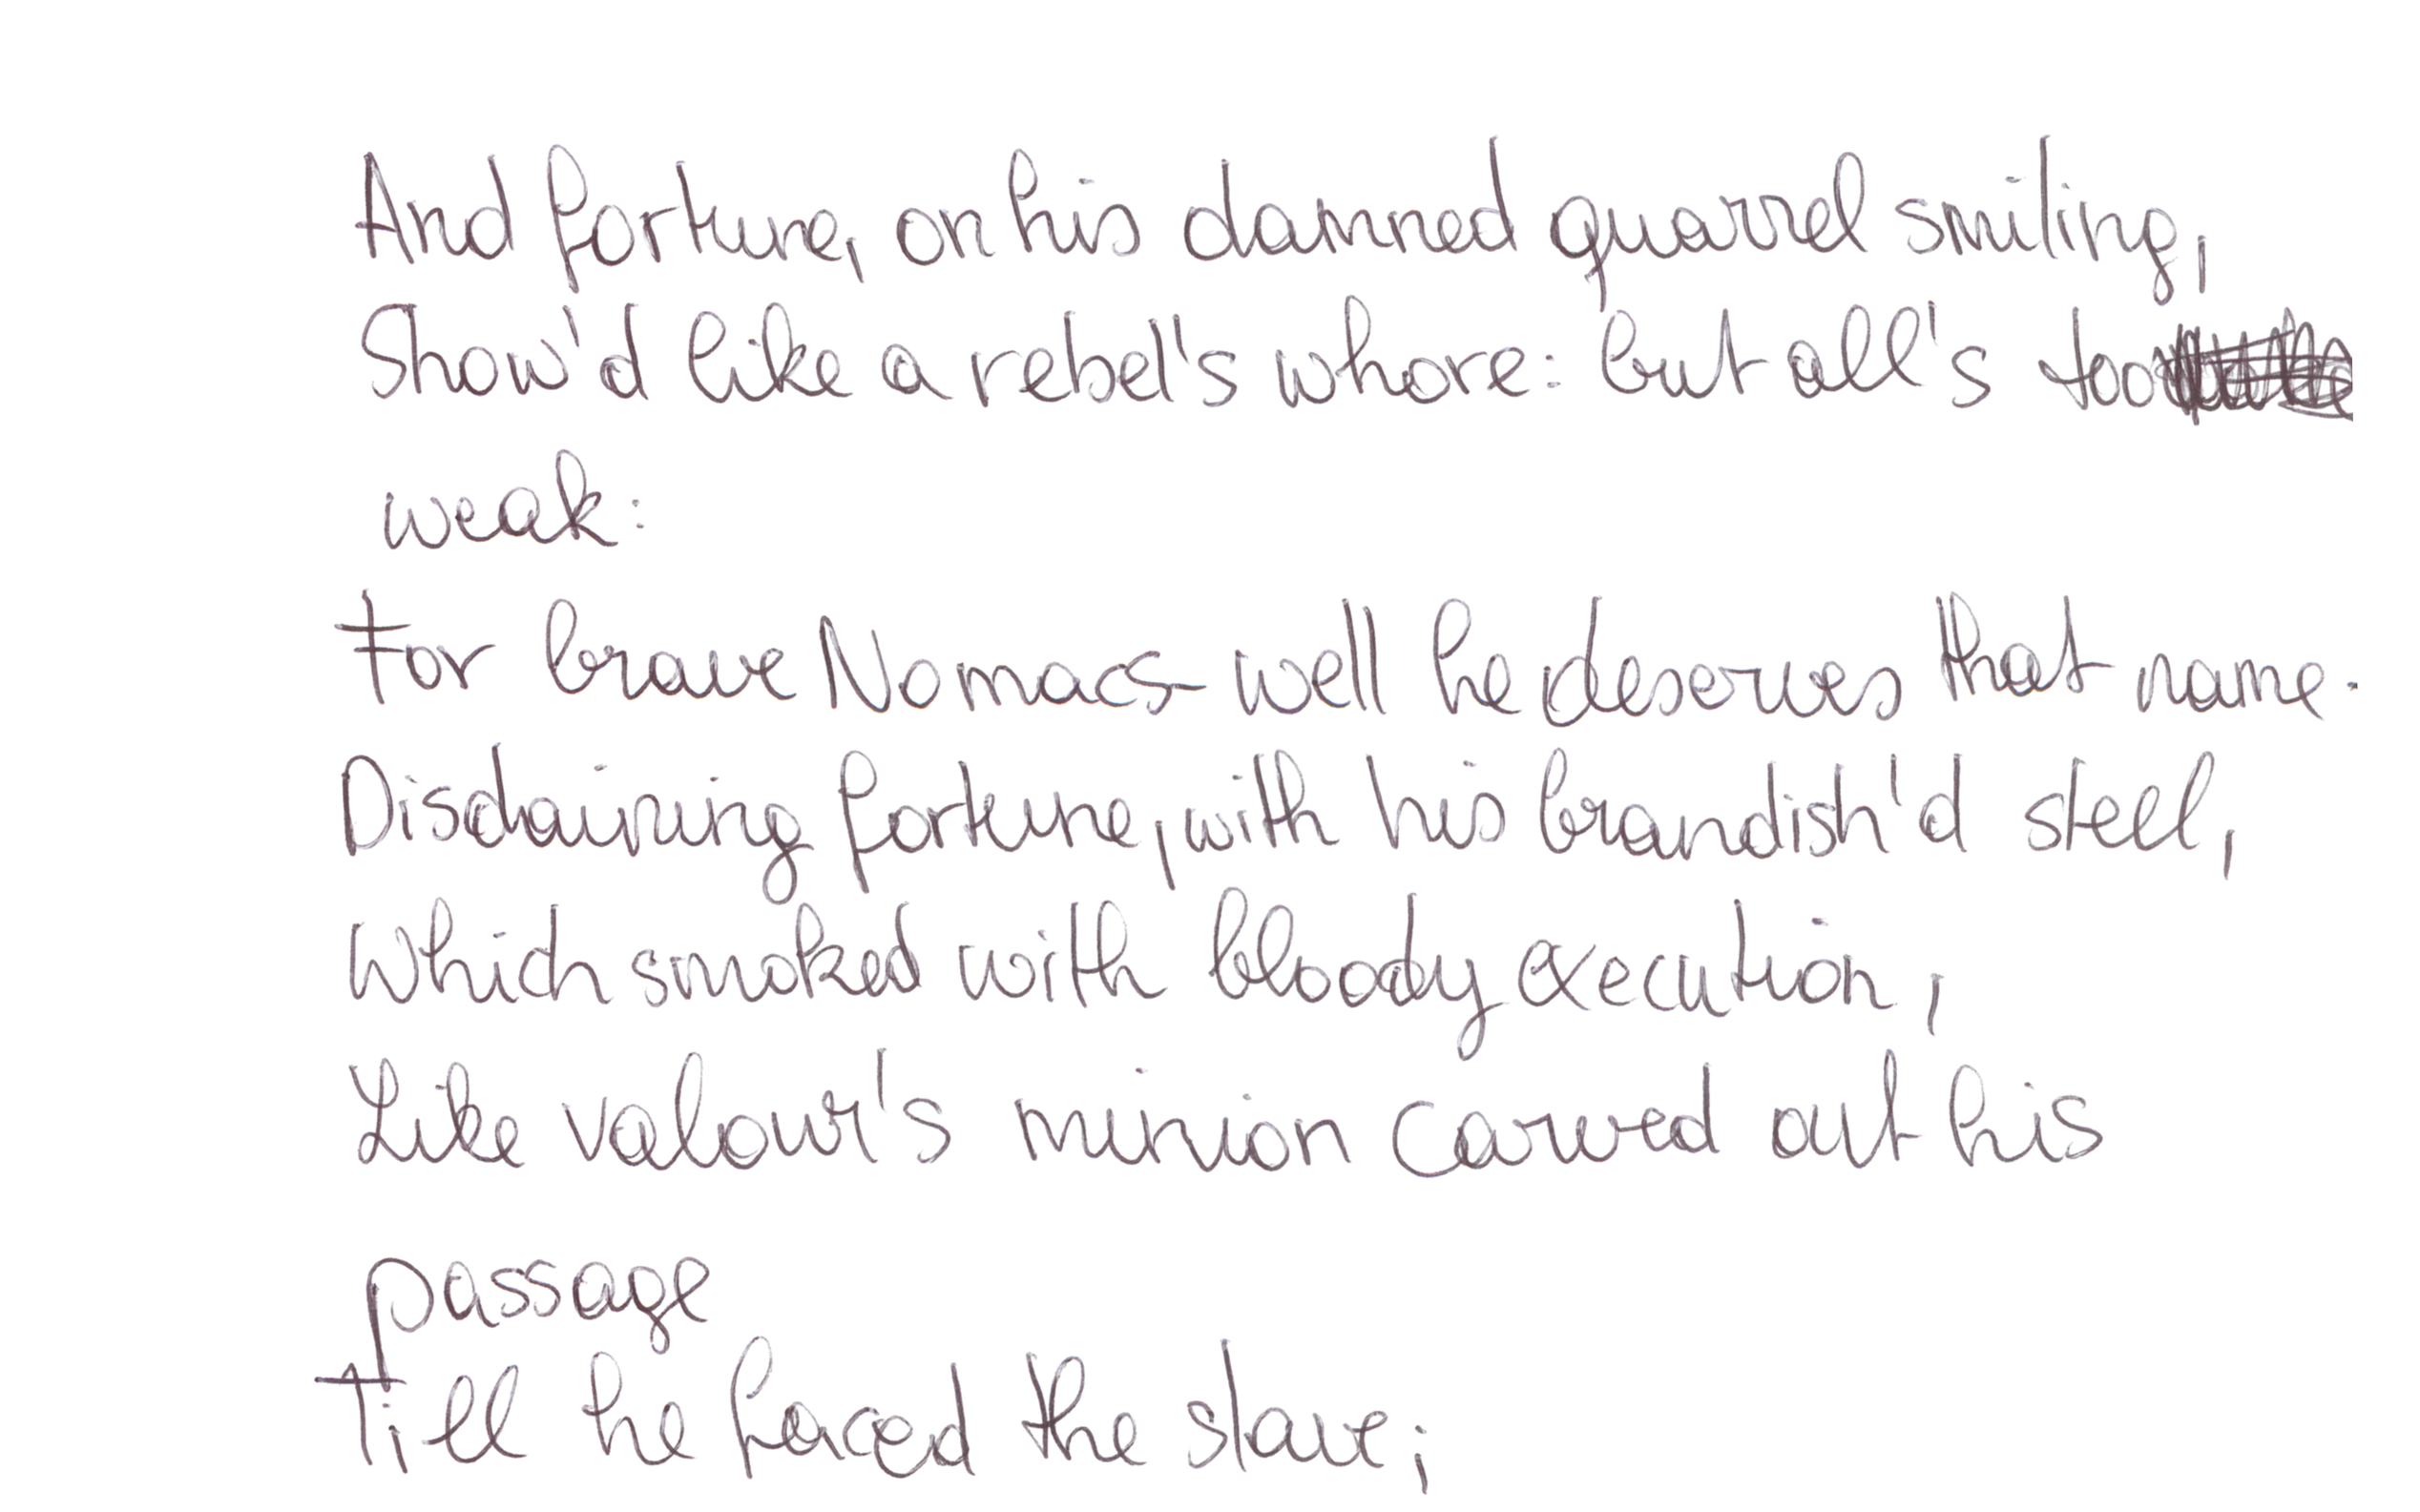 And fortune, on his damned quarrel smiling,
Show'd like a rebel's whore: but all's too
weak:
For brave Nomacs- well he deserves that name-
Disdaining fortune, with his brandish'd steel,
Which smoked with bloody execution,
Like valour's minion carved out his
passage
Till he faced the slave;